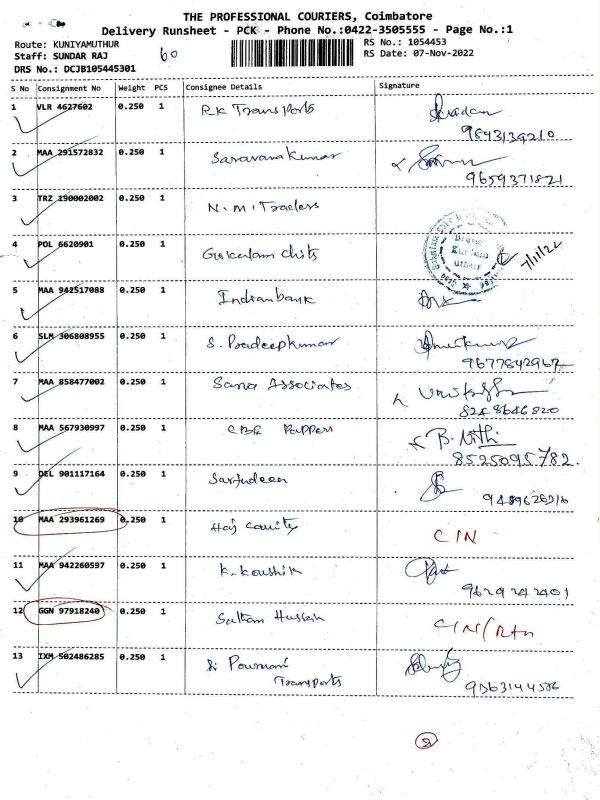 THE PROFESSIONAL COURIERS, Coimbatore
Delivery Runsheet - PCK - Phone No.:0422-3505555 - Page No.:1
Route: KUNIYAMUTHUR
RS No.: 1054453
Staff: SUNDAR RAJ
60
RS Date: 07-Nov-2022
DRS No.: DCJB105445301
S No Consignment No Weight PCS Consignee Details Signature
1 VLR 4627602 0.250 1 RK Transports
9843139210
2 MAA 291572832 0.250 1 Saravanakumar
9659371821
3 TRZ 190002002 0.250 1 N.M. Traders
4 POL 6620901 0.250 1 Gokulam Chits 7/11/22
5 MAA 942517088 0.250 1 Indian bank
6 SLM 306808955 0.250 1 S. Pradeepkumar
9677842967
7 MAA 858477002 0.250 1 Sana Associates
8248646820
8 MAA 567930997 0.250 1 CBE B. Nithi
8525095782.
9 DEL 901117164 0.250 1 Sarjudeen
9489628216
10 MAA 293961269 0.250 1 Haj CIN
11 MAA 942260597 0.250 1 K. Koushik
9629242401
12 GGN 97918240 0.250 1 Hussain CIN/Rtn
13 IXM 502486285 0.250 1 Sri Pournami
Transports
9363144586
2